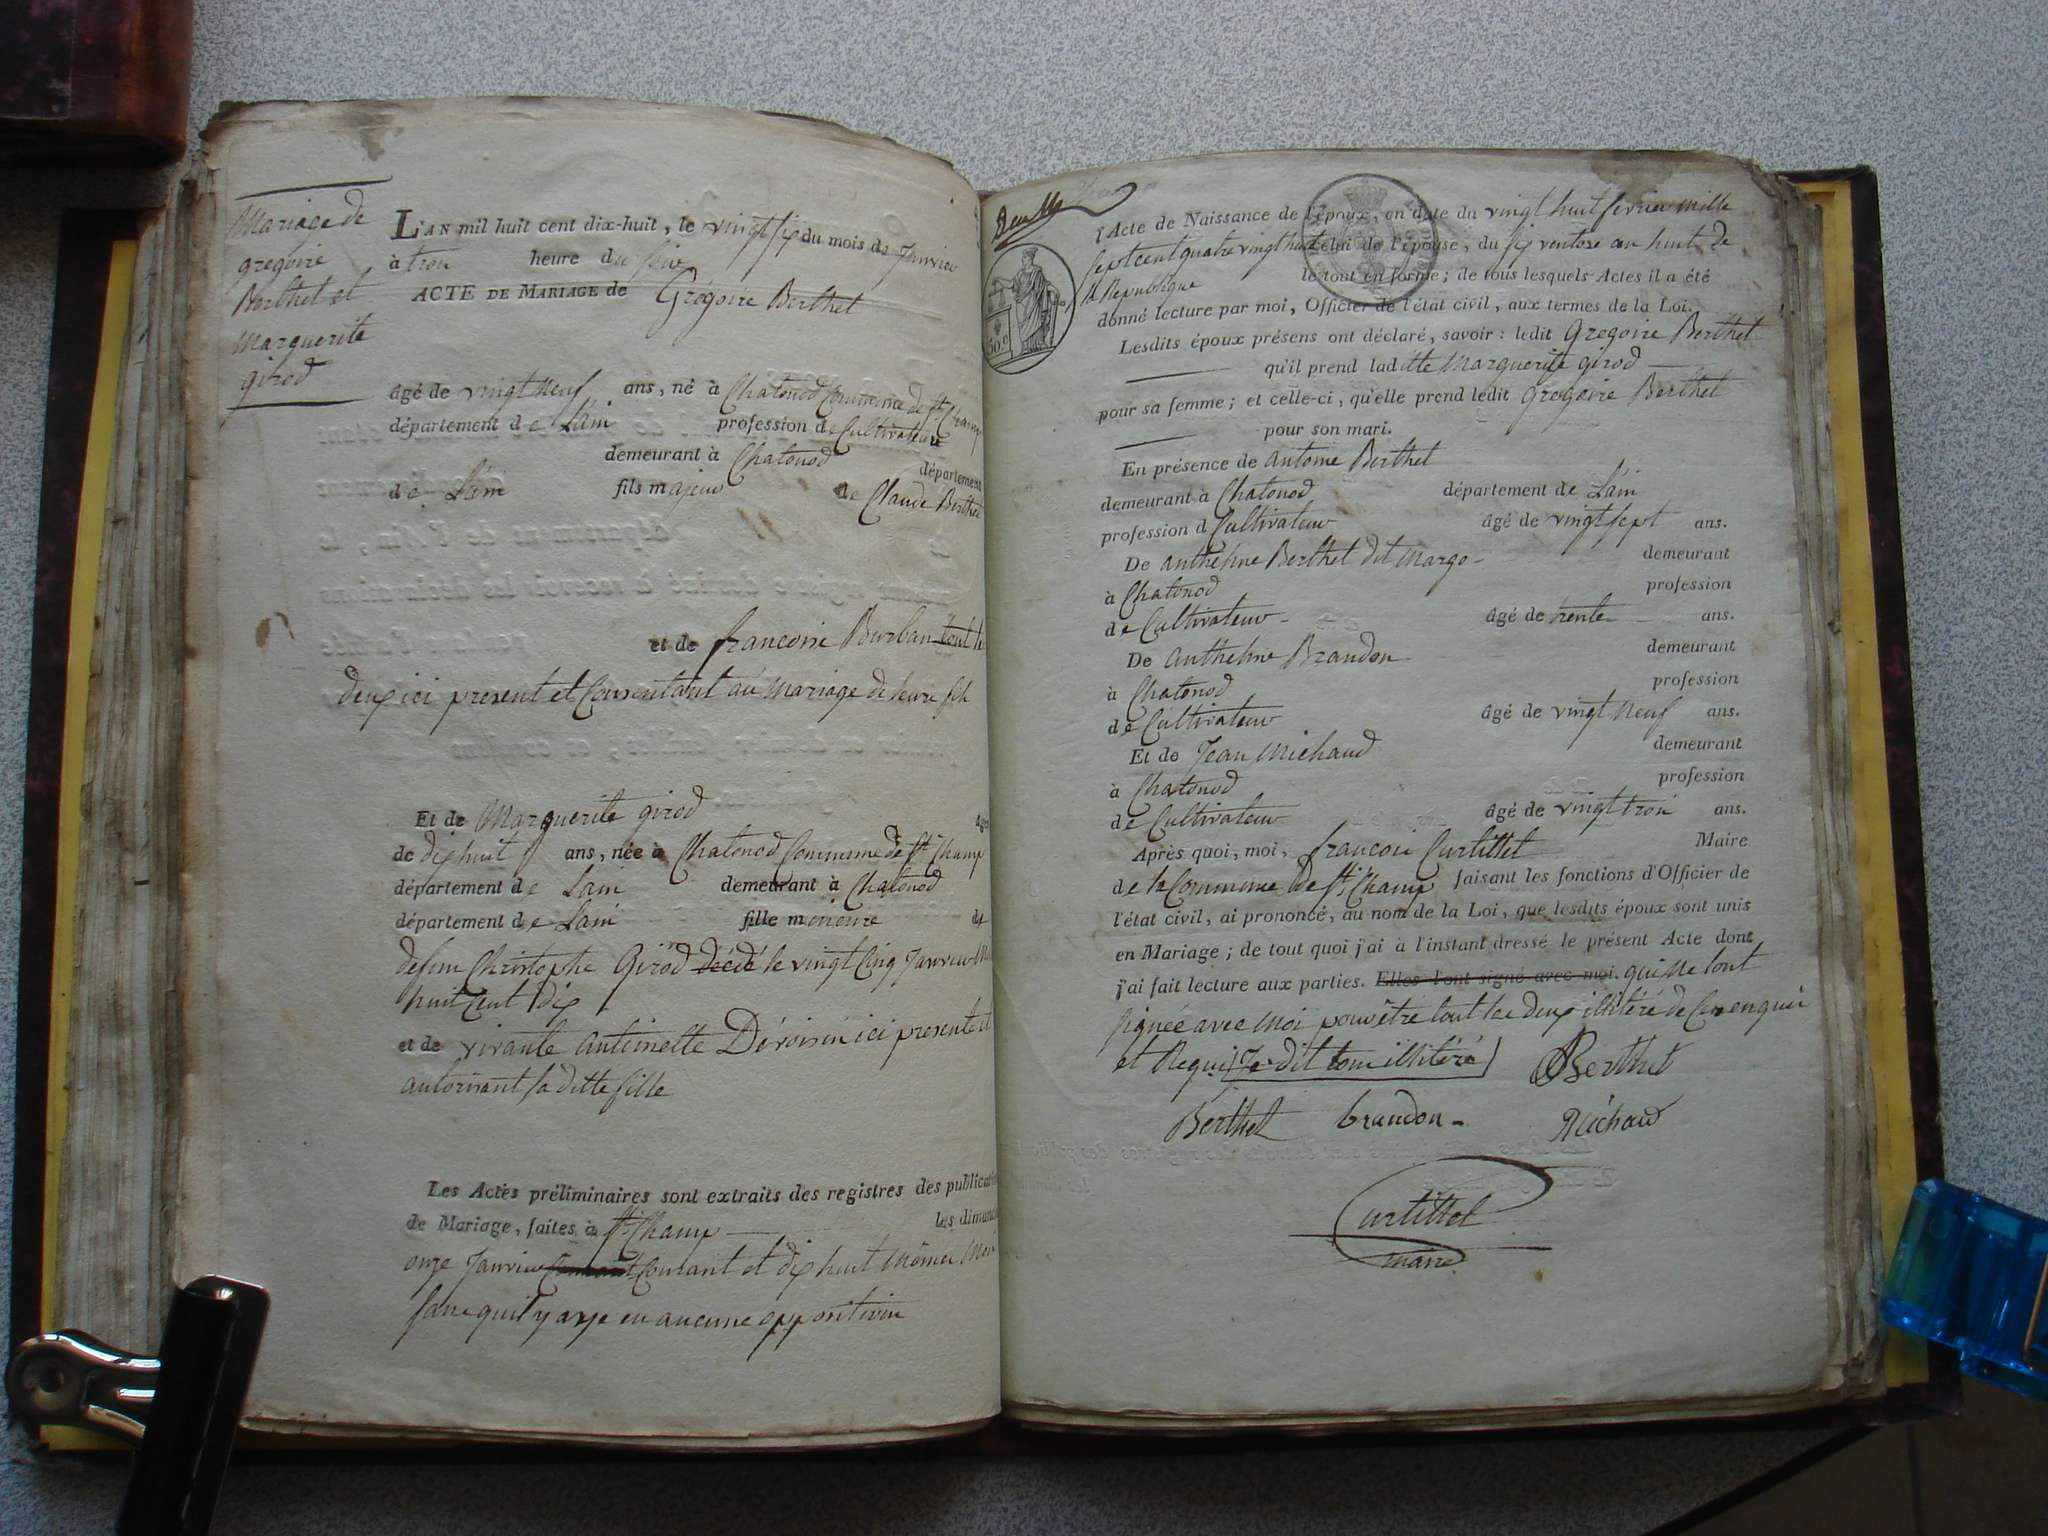 Mariage de
gregoire
Berthet et
Marguerite
girod
L'AN mil huit cent dix-huit, le vingt six du mois de Janvier
à troi heure du soir
ACTE DE MARIAGE de Grégoire Berthet
âgé de vingt neuf ans, né à Chatonod Commune de St Champ
département de Lain profession de Cultivateur
demeurant à Chatonod département
de Lain fils majeur de Claude Berthet
et de francoise Burban tout le
deux ici present et Consentant au mariage de leure fils
Et de Marguerite girod âgée
de dix huit ans, née à Chatonod Commune de St Champ
département de Lain demeurant à Chatonod
département de Lain fille mineure de
defun Christophe Girod décédé le vingt Cinq Janvier
huit Cent dix
et de vivante antoinette Dévoisin ici presente et
autorisant sa ditte fille
Les Actes préliminaires sont extraits des registres des publications
de Mariage, faites à St Champ les dimanches
onze Janvier Courant et dix huit même
sans quil y aye eu aucune opposition
l'Acte de Naissance de l'époux, en date du vingt huit fevrier mille
sept cent quatre vingt huit celui de l'épouse, du six ventose an huit de
la Republique le tout en forme; de tous lesquels Actes il a été
donné lecture par moi, Officier de l'état civil, aux termes de la Loi.
50.c
Lesdits époux présens ont déclaré, savoir: ledit Gregoire Berthet
qu'il prend laditte Marguerite girod
pour sa femme; et celle-ci, qu'elle prend ledit Gregoire Berthet
pour son mari.
En présence de antoine Berthet
demeurant à Chatonod département de Lain
profession d Cultivateur âgé de vingt sept ans.
De anthelme Berthet dit margo demeurant
à Chatonod profession
de Cultivateur âgé de trente ans.
De anthelme Brandon demeurant
à Chatonod profession
de Cultivateur âgé de vingt neuf ans.
Et de Jean Michaud demeurant
à Chatonod profession
de Cultivateur âgé de vingt troi ans.
Après quoi, moi, francoi Curtillet Maire
de la Commune de St Champ faisant les fonctions d'Officier de
l'état civil, ai prononcé, au nom de la Loi, que lesdits époux sont unis
en Mariage; de tout quoi j'ai à l'instant dressé le présent Acte dont
j'ai fait lecture aux parties. Elles l'ont signé avec moi. qui ne lont
signée avec moi pour être tout les deux illitéré de Ce enquis
et Requi Je dit tout illitéré Berthet
Berthet brandon Michaud
Curtillet
maire